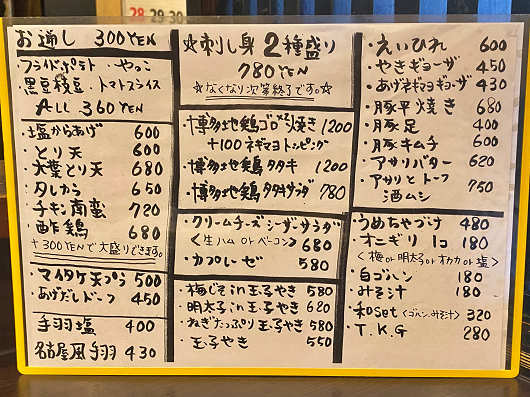 28 29 30
お通し 300YEN
フライドポテト・やっこ
黒豆枝豆・トマトスライス
ALL 360YEN
塩からあげ 600
・とり天 600
・大葉とり天 680
・タレから 650
・チキン南蛮 720
・酢鶏 680
+300YENで大盛りできます。
・マイタケ天プラ 500
・あげだしドーフ 450
手羽塩 400
名古屋風手羽 430
☆刺し身2種盛り
780YEN
☆なくなり次第終了です。☆
・博多地鶏ゴロゴロ焼き 1200
+100ネギマヨトッピング
・博多地鶏タタキ 1200
・博多地鶏タタキサラダ 780
・クリームチーズシーザーサラダ
<生ハム or ベーコン> 680
・カプレーゼ 580
・梅じそin玉子やき 580
・明太子in玉子やき 620
・ねぎたっぷり玉子やき 580
・玉子やき 550
・えいひれ 600
・やきギョーザ 450
・あげネギマヨギョーザ 430
・豚平焼き 680
・豚足 400
・豚キムチ 600
・アサリバター 620
・アサリとトーフ
酒ムシ 750
・うめちゃづけ 480
・オニギリ 1コ 180
<梅or明太子orオカカor塩>
・白ごはん 180
・みそ汁 180
・和set<ゴハン、みそ汁> 320
・T.K.G 280